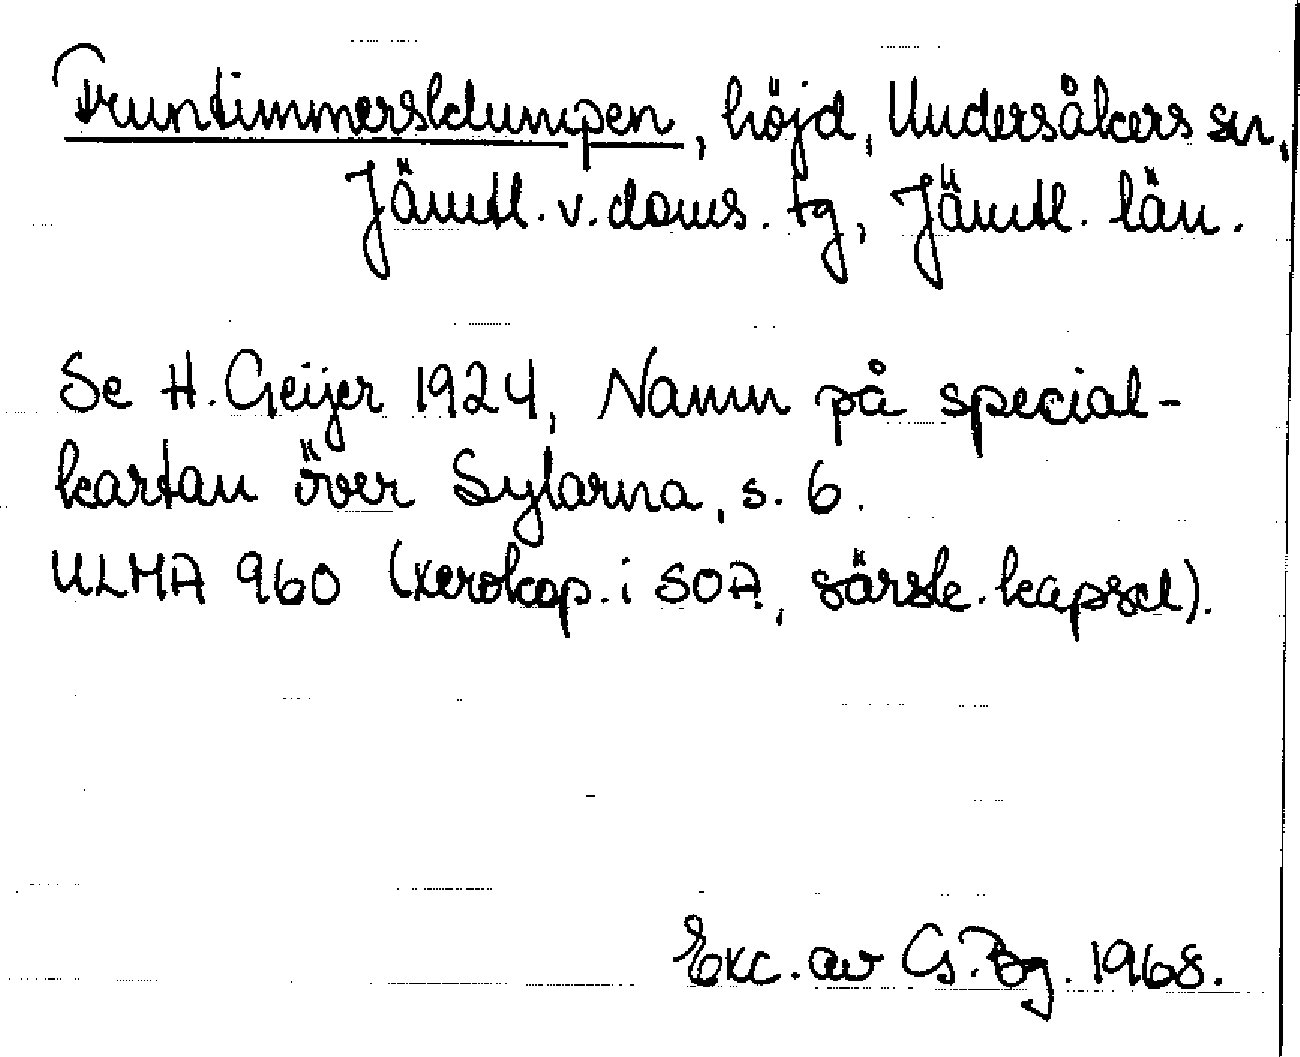 Fruntimmersklumpen, höjd, Undersåkers sn,
Jämtl. v. doms. tg, Jämtl. län.
Se H. Geijer 1924, Namn på special-
kartan över Sylarna, s. 6.
ULMA 960 (xerokop. i SOA, särsk. kapsel).
Exc. av G. Bg. 1968.